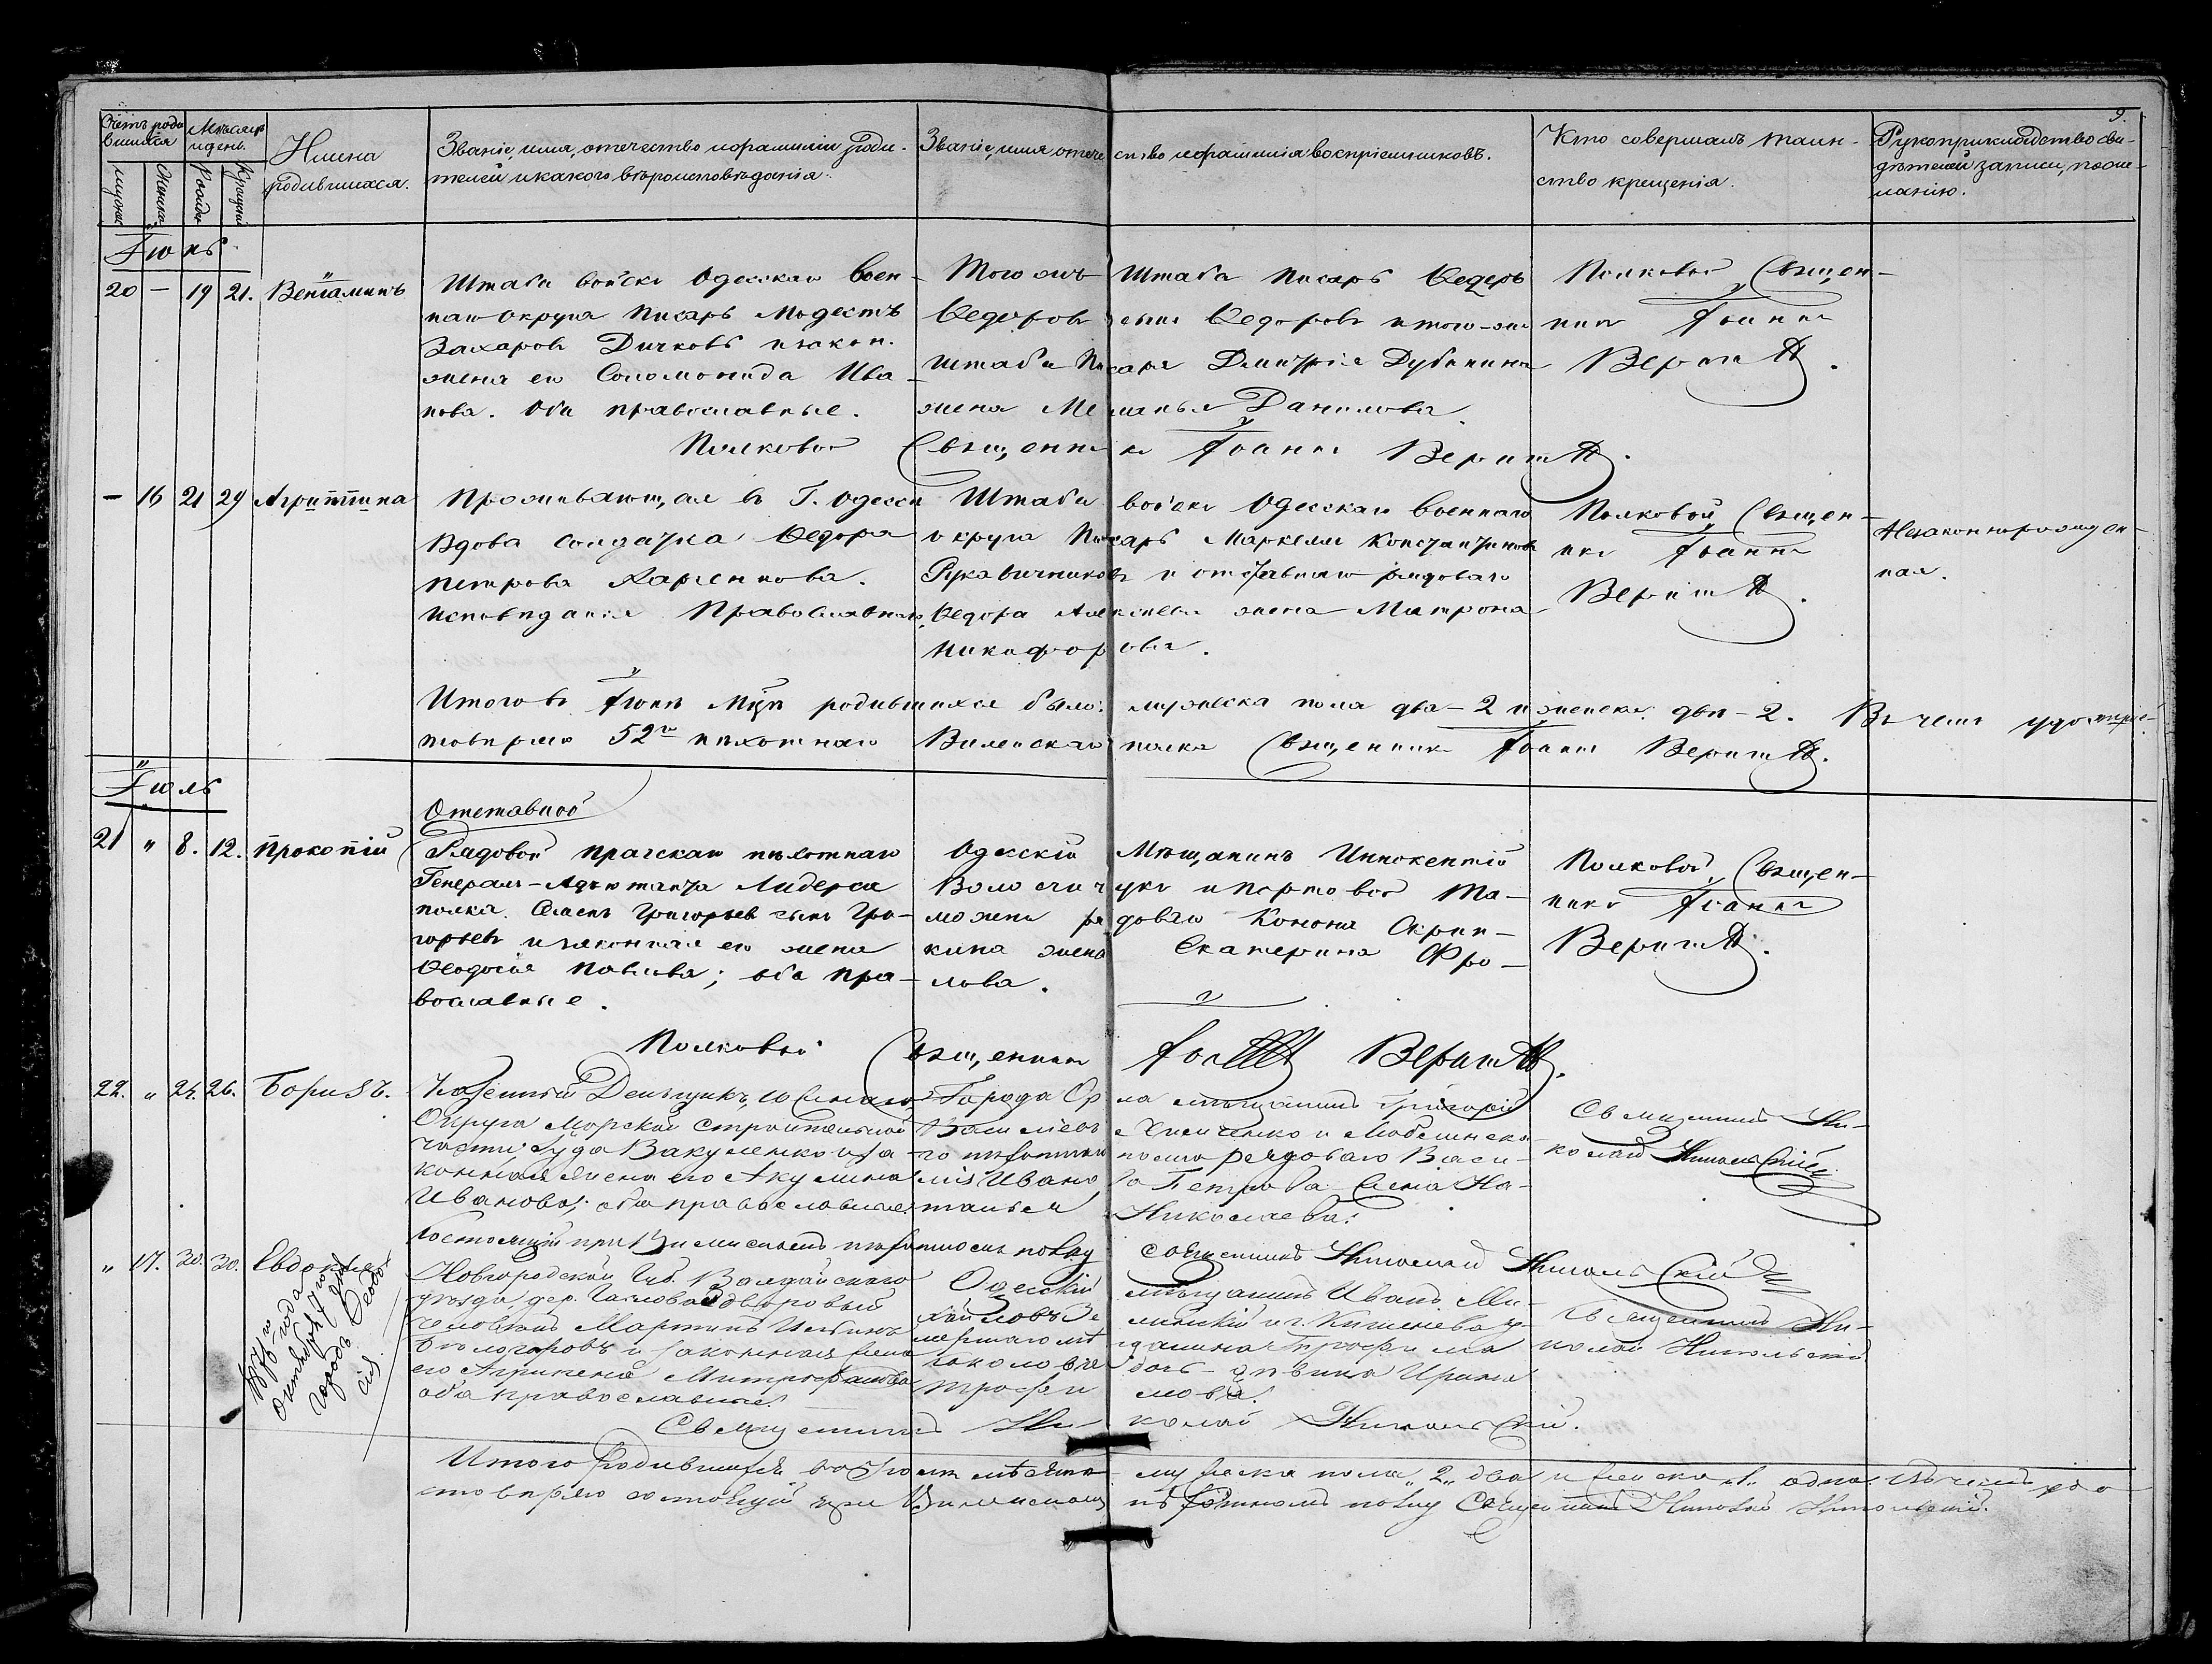 9.
Счетъ роди
вшихся
Мѣсяцъ
и день.
Имена
родившихся.
Званіе, имя, отечество и фамилія роди-
телей и какого вѣроисповѣданія.
Званіе, имя отечество и фамилія воспріемниковъ.
Кто совершалъ таин-
ство крещенія.
Рукоприкладство сви-
дѣтелей записи, по же-
ланію.
мужска
Женска
Рожде
Крещені
Іюнь
20 — 19 21. Веніаминъ
Штаба войскъ Одесскаго Воен-
наго Округа Писарь Модестъ
Захаровъ Дичковъ и закон.
жена его Соломонида Ива-
нова. Оба православные.
Того же Штаба Писарь Ѳедоръ
Ѳедоровъ сынъ Ѳедоровъ и того-же
штаба Писаря Дмитрія Дубинина
жена Меланья Данилова
Полковой Священ-
никъ Іоаннъ
Веритѣ.
Полковой Священникъ Іоаннъ
— 16 21 29 Агриппина
Проживающая въ Г. Одессѣ
Вдова солдатка Ѳедора
Петрова Харченкова.
исповѣданія Православнаго.
Штаба войскъ Одесскаго военнаго
округа Писарь Маркеллъ Константиновъ
Рукавичниковъ и отставнаго рядоваго
Ѳедора Алексѣева жена Матрона
Никифорова.
Полковой Священ-
никъ Іоаннъ
Незаконнорожден-
ная.
Итого въ Іюнѣ мцѣ родившихся было: мужска пола два — 2 и женска двѣ — 2. Въ чемъ удостовѣ-
товѣряю 52го пѣхотнаго Виленскаго полка Священникъ Іоаннъ
Іюль
21 " 8. 12. Прокопій
Отставной
Рядовой Пражскаго пѣхотнаго
Генералъ-Адъютанта Лидерса
полка. Семенъ Григорьевъ сынъ Гри-
горьевъ и законная его жена
Ѳеодосія Павлова; оба пра-
вославные.
Одесскій Мѣщанинъ Иннокентій
и Портовой Та-
можни рядоваго Конона Скрип-
кина жена Екатерина Фро-
лова.
Полковой Священ-
никъ Іоаннъ
Полковый Священникъ
22. " 24. 26. Борисъ.
Казенный Деньщикъ, Южнаго
Округа Морской Строительной
части Іуда Вакуленко и за-
конная жена его Акулина
Иванова; оба православные.
Города Орла мѣщанинъ Григорій
и Люблинска-
го пѣхотнаго полка рядоваго Васи-
лія Иванова Петрова жена На-
талья Николаева.
Священникъ Ни-
колай Никольскій
Состоящій при Виленскомъ пѣхотномъ полку Священникъ Николай Никольскій
" 17. 30. 30. Евдокія
1876 го
года
Октября 17 го
дня
городъ Ѳеодо-
сія.
Новгородской Губ. Валдайскаго
уѣзда, дер. дворовый
человѣкъ Мартинъ Ильинъ
Бѣлогоровъ и законная жена
его Агрипена Митрофанова
оба православные.
Одесскій мѣщанинъ Иванъ Ми-
хайловъ
дочь дѣвица Ирина
Трофимова.
Священникъ Ни-
колай Никольскій
Священникъ Николай Никольскій.
Итого родившихся въ Іюлѣ мѣсяцѣ мужеска пола „2„ два и женска „1„ одна. Въ чемъ удо-
стовѣряю состоящій при Виленскомъ пѣхотномъ полку Священникъ Николай Никольскій.